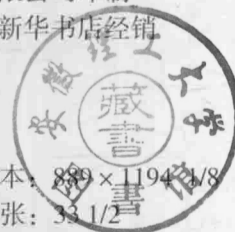 新华书店经销
安徽理工大学
藏
书
图书馆
本: 889×1194 1/8
张: 33 1/2